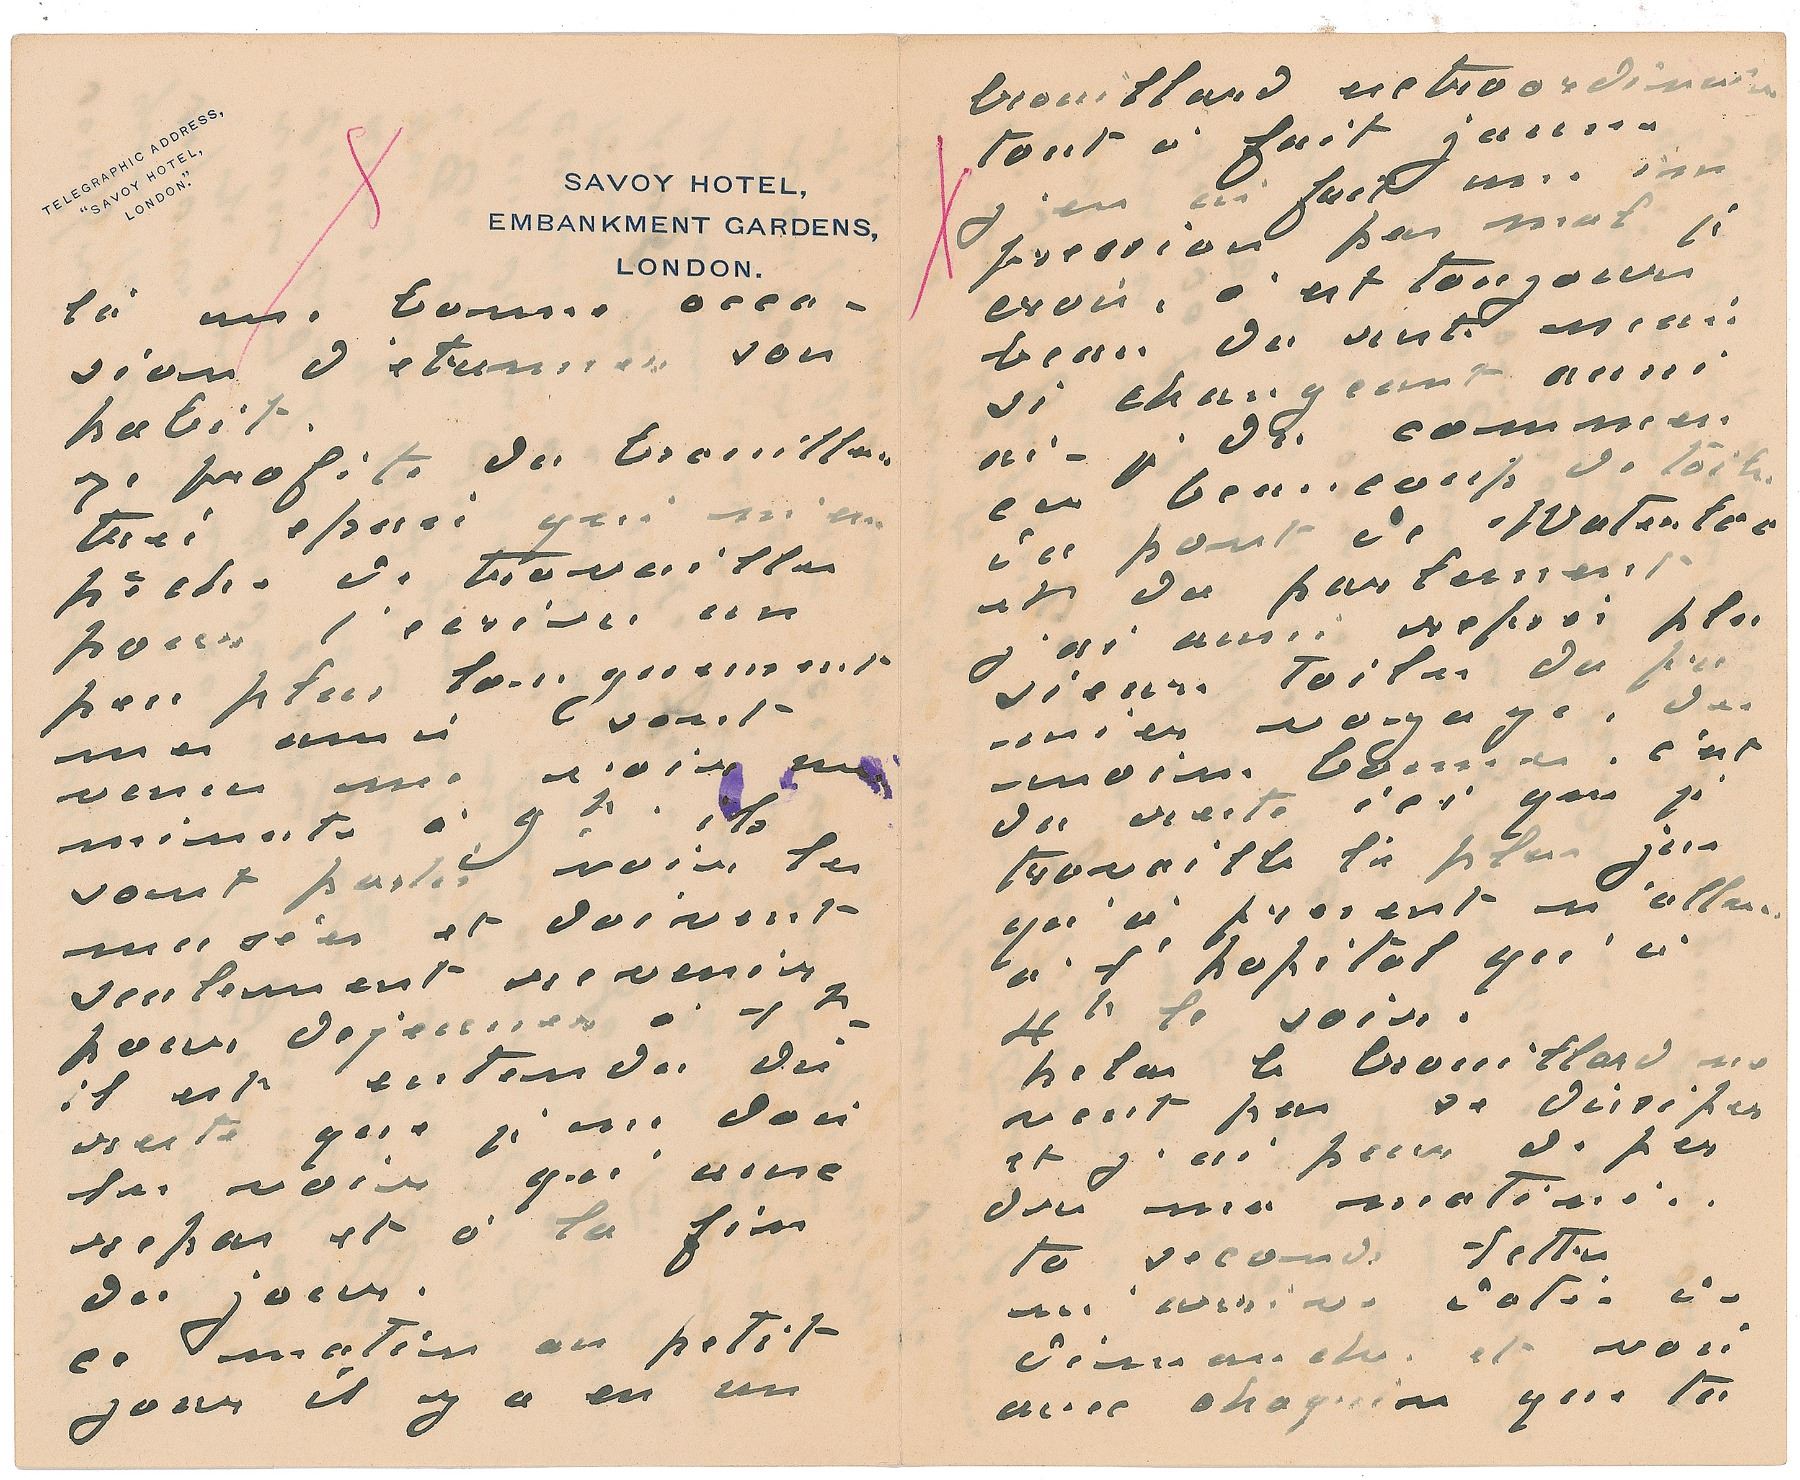 TELEGRAPHIC ADDRESS,
"SAVOY HOTEL,
LONDON."
SAVOY HOTEL,
EMBANKMENT GARDENS,
LONDON.
là une bonne occa-
sion d'étrenner son
habit.
Je profite du brouillard
très épais qui m'em
pêche de travailler
pour t'écrire un
peu plus longuement
mes amis sont
venus me voir une
minute à 9h. ils
sont partis voir les
musées et doivent
seulement revenir
pour dejeuner à 1h
il est entendu du
reste que je ne dois
les voir qu'aux
repas et à la fin
du jour.
ce matin au petit
jour il y a eu un
brouillard extraordinaire
tout à fait jaune
j'en ai fait une im
pression pas mal je
crois, c'est toujours
beau du reste mais
si changeant aussi
ai-je du commen
cer beaucoup de toiles
du pont de Waterloo
et du parlement
j'ai aussi repris plu
sieurs toiles du pre
mier voyage, les
moins bonnes, c'est
du reste ici que je
travaille le plus jus
qu'à présent n'allant
à l'hopital qu'à
4h le soir.
helas le brouillard ne
veut pas se dissiper
et j'ai peur de per
dre ma matinée.
ta seconde lettre
m'arrive datée de
dimanche et vois
avec chagrin que tu